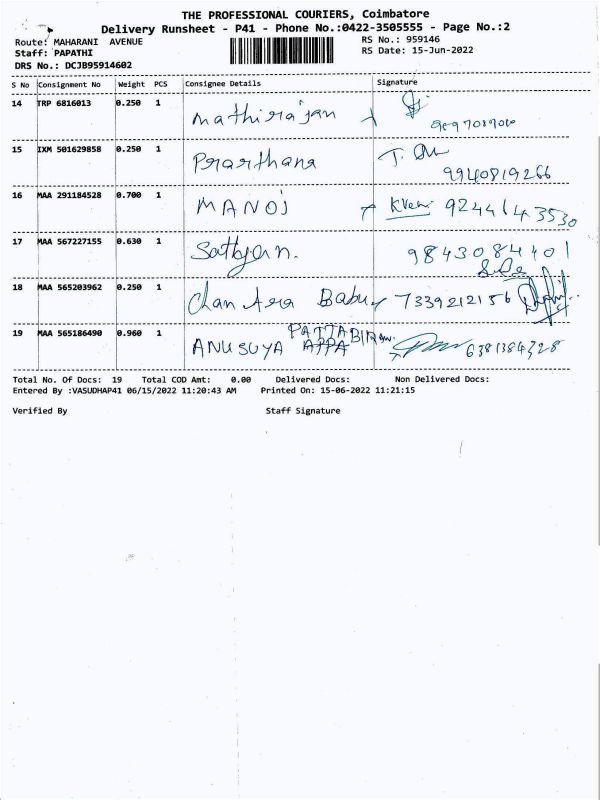 THE PROFESSIONAL COURIERS, Coimbatore
Delivery Runsheet - P41 - Phone No.:0422-3505555 - Page No.:2
Route: MAHARANI AVENUE
RS No.: 959146
Staff: PAPATHI
RS Date: 15-Jun-2022
DRS No.: DCJB95914602
S No Consignment No Weight PCS Consignee Details Signature
14 TRP 6816013 0.250 1 Mathirajan
15 IXM 501629858 0.250 1 Prarthana 9940819266
16 MAA 291184528 0.700 1 MANOJ 9244143530
17 MAA 567227155 0.630 1 Sathyan. 9843084401
18 MAA 565203962 0.250 1 Babu 7339212156
19 MAA 565186490 0.960 1 ANUSUYA APPA 6381384728
Total No. Of Docs: 19 Total COD Amt: 0.00 Delivered Docs: Non Delivered Docs:
Entered By :VASUDHAP41 06/15/2022 11:20:43 AM Printed On: 15-06-2022 11:21:15
Verified By Staff Signature